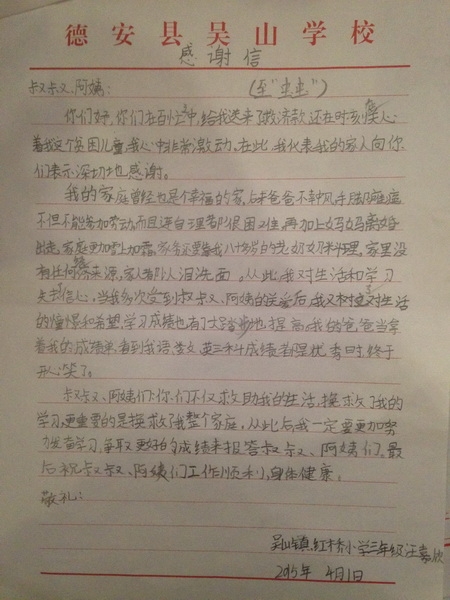 德安县吴山学校
感谢信
叔叔、阿姨： （至“虫虫”）
你们好，你们在百忙之中，给我送来了救济款还在时刻关心
着我这个贫困儿童，我心中非常激动，在此，我代表我的家人向你
们表示深切地感谢。
我的家庭曾经也是个幸福的家，后来爸爸不幸中风手脚瘫痪
不但不能参加劳动而且连自理都很困难，再加上妈妈离婚
出走，家庭更加雪上加霜，家务还要靠我八十岁的老奶奶来料理，家里没
有任何经济来源，家人都以泪洗面。从此，我对生活和学习
失去信心，当我多次受到叔叔、阿姨的关爱后，我又树立对生活
的憧憬和希望，学习成绩也有了大踏步地提高。我的爸爸当拿
着我的成绩单，看到我语、数、英三科成绩都是优秀时，终于
开心笑了。
叔叔、阿姨们：你们不仅救助我的生活，挽救了我的
学习，更重要的是挽救了我整个家庭，从此后我一定要更加努
力发奋学习，争取更好的成绩来报答叔叔、阿姨们，最
后祝叔叔、阿姨们工作顺利，身体健康。
敬礼：
吴山镇红桥小学三年级汪嘉欣
2015年 4月1日